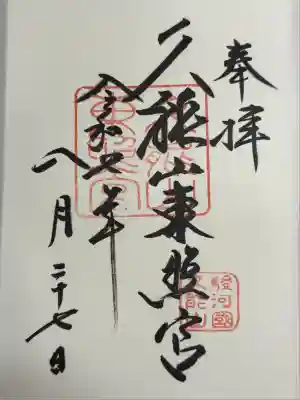 奉拝
久能山東照宮
令和六年
八月二十七日
駿河國
久能山